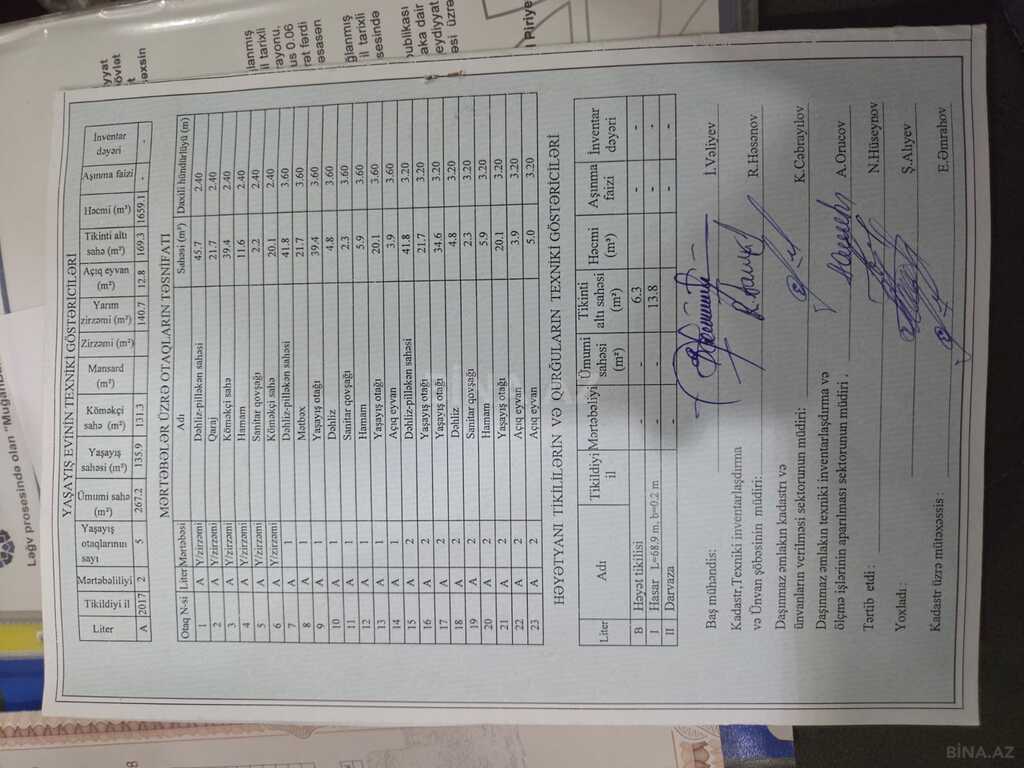 YAŞAYIŞ EVİNİN TEXNİKİ GÖSTƏRİCİLƏRİ
Liter Tikildiyi il Mərtəbəliliyi Yaşayış otaqlarının sayı Ümumi sahə (m²) Yaşayış sahəsi (m²) Köməkçi sahə (m²) Mansard (m²) Zirzəmi (m²) Yarım zirzəmi (m²) Açıq eyvan (m²) Tikinti altı sahə (m²) Həcmi (m³) Aşınma faizi İnventar dəyəri
A 2017 2 5 267.2 135.9 131.3 140.7 12.8 169.3 1659.1 - -
MƏRTƏBƏLƏR ÜZRƏ OTAQLARIN TƏSNİFATI
Otaq N-si Liter Mərtəbəsi Adı Sahəsi (m²) Daxili hündürlüyü (m)
1 A Y/zirzəmi Dəhliz-pilləkən sahəsi 45.7 2.40
2 A Y/zirzəmi Qaraj 21.7 2.40
3 A Y/zirzəmi Köməkçi sahə 39.4 2.40
4 A Y/zirzəmi Hamam 11.6 2.40
5 A Y/zirzəmi Sanitar qovşağı 2.2 2.40
6 A Y/zirzəmi Köməkçi sahə 20.1 2.40
7 A 1 Dəhliz-pilləkən sahəsi 41.8 3.60
8 A 1 Mətbəx 21.7 3.60
9 A 1 Yaşayış otağı 39.4 3.60
10 A 1 Dəhliz 4.8 3.60
11 A 1 Sanitar qovşağı 2.3 3.60
12 A 1 Hamam 5.9 3.60
13 A 1 Yaşayış otağı 20.1 3.60
14 A 1 Açıq eyvan 3.9 3.60
15 A 2 Dəhliz-pilləkən sahəsi 41.8 3.20
16 A 2 Yaşayış otağı 21.7 3.20
17 A 2 Yaşayış otağı 34.6 3.20
18 A 2 Dəhliz 4.8 3.20
19 A 2 Sanitar qovşağı 2.3 3.20
20 A 2 Hamam 5.9 3.20
21 A 2 Yaşayış otağı 20.1 3.20
22 A 2 Açıq eyvan 3.9 3.20
23 A 2 Açıq eyvan 5.0 3.20
HƏYƏTYANI TİKİLİLƏRİN VƏ QURĞULARIN TEXNİKİ GÖSTƏRİCİLƏRİ
Liter Adı Tikildiyi il Mərtəbəliyi Ümumi sahəsi (m²) Tikinti altı sahəsi (m²) Həcmi (m³) Aşınma faizi İnventar dəyəri
B Həyət tikilisi - - 6.3 - - -
I Hasar L=68.9 m, b=0.2 m - - 13.8 - - -
II Darvaza - - - - -
Baş mühəndis: İ.Vəliyev
Kadastr,Texniki inventarlaşdırma
və Ünvan şöbəsinin müdiri: R.Həsənov
Daşınmaz əmlakın kadastrı və
ünvanların verilməsi sektorunun müdiri: K.Cəbrayılov
Daşınmaz əmlakın texniki inventarlaşdırma və
ölçmə işlərinin aparılması sektorunun müdiri : A.Orucov
Tərtib etdi : N.Hüseynov
Yoxladı: Ş.Alıyev
Kadastr üzrə mütəxəssis : E.Əmrahov
Ləğv prosesində olan "Muğanba
BİNA.AZ
BİNA.AZ